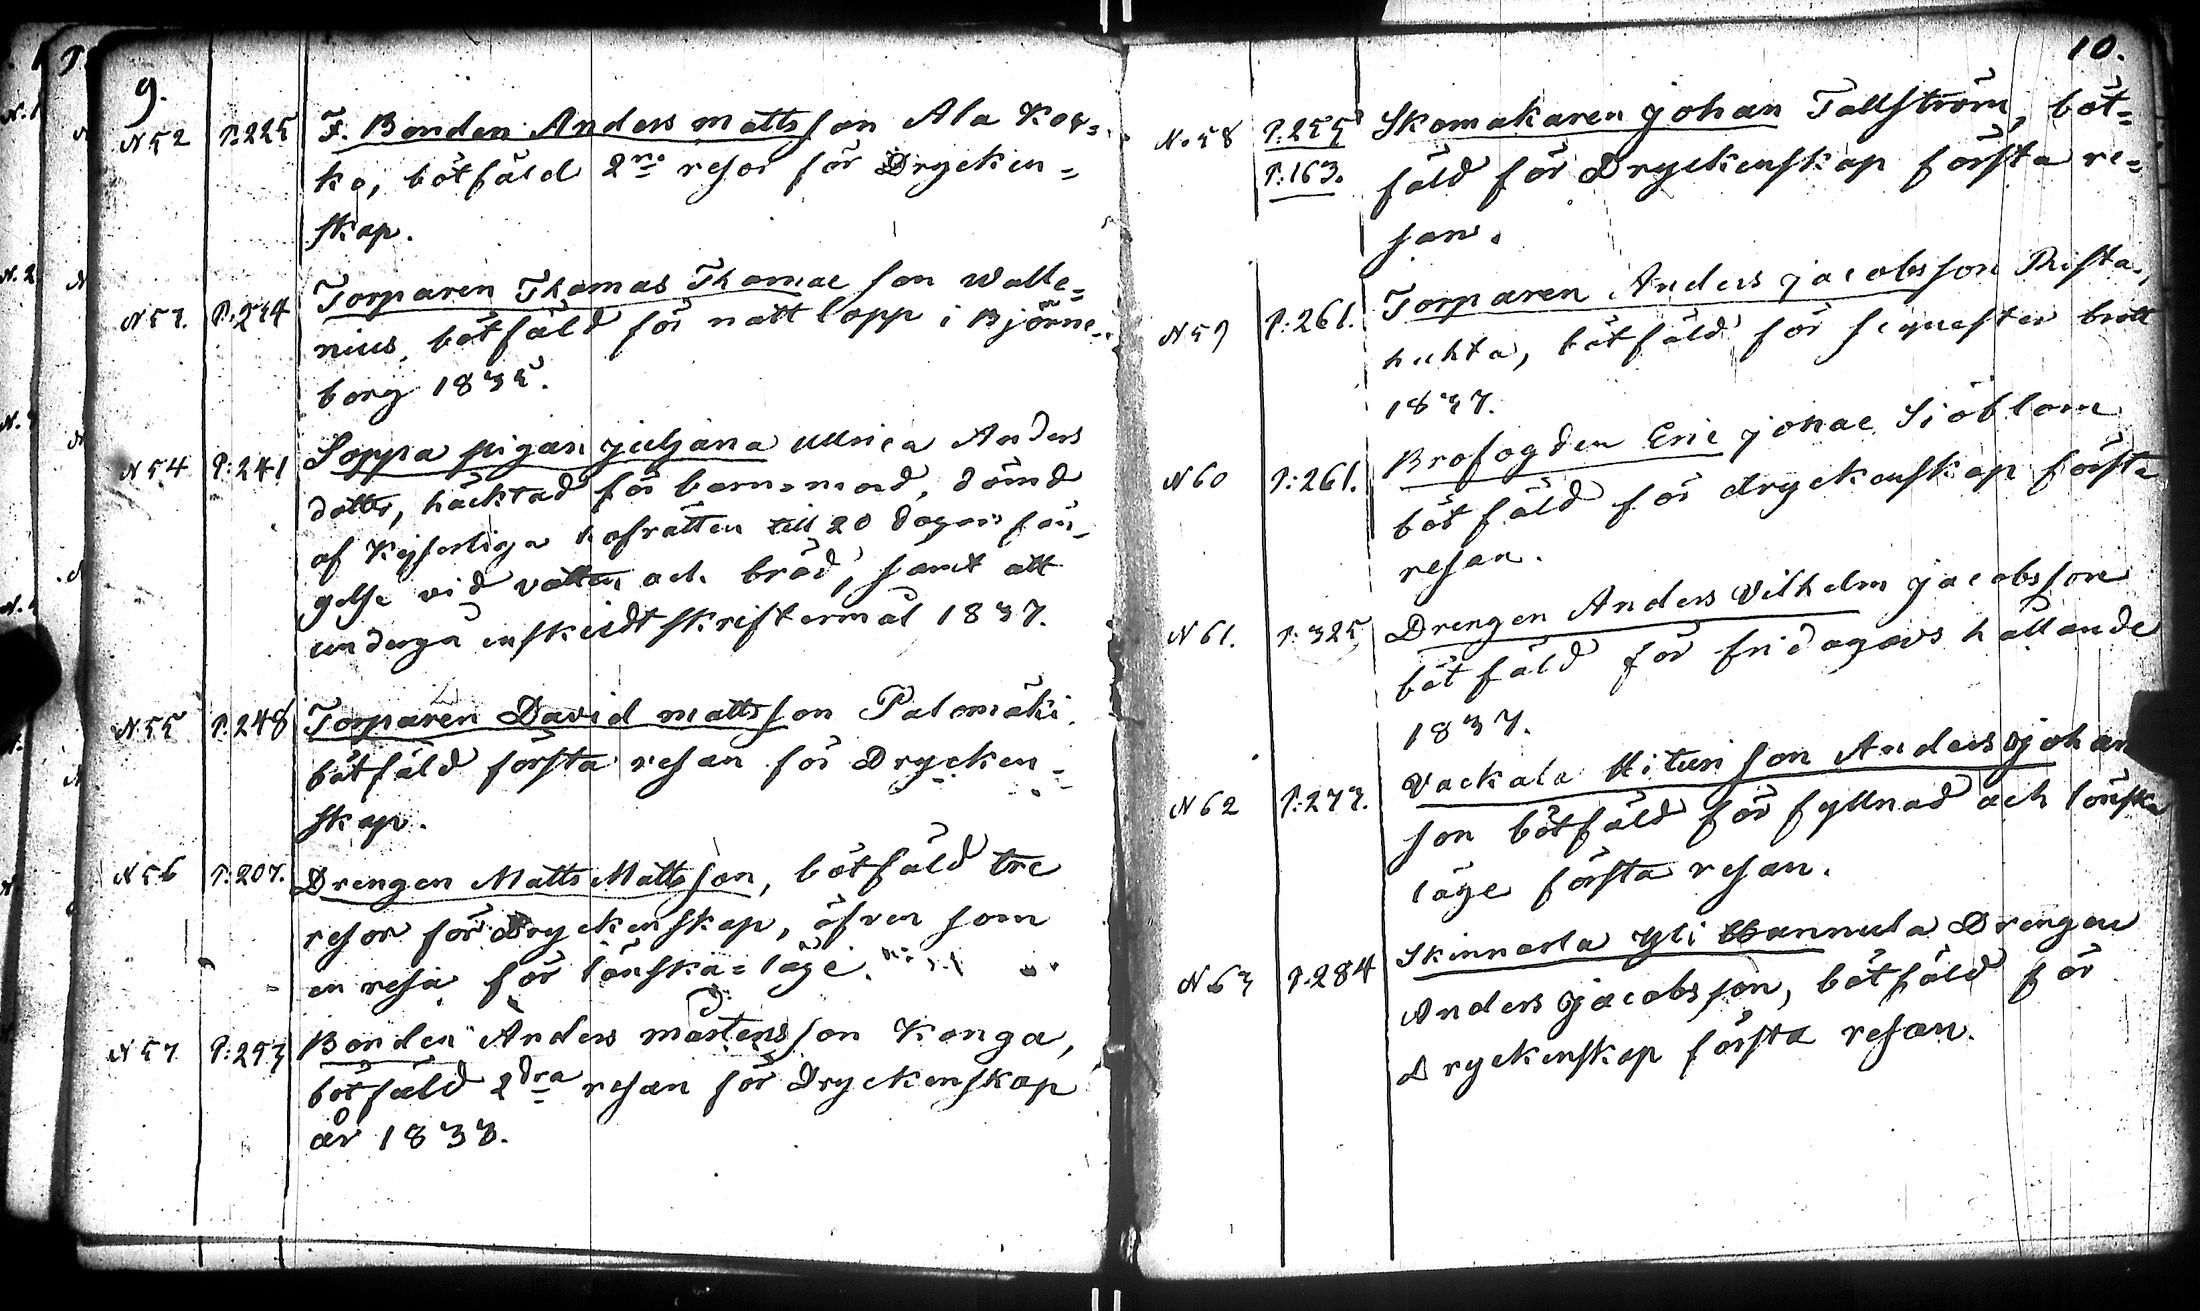 9.
N 52 P:225 F. Bonden Anders Matts son Ala Kos=
ko, bötfäld 2ne resor för Drycken=
skap.
N 53. P:234 Torparen Thomas Thomae son Walle=
nius, bötfäld för nattlopp i Björne=
borg 1835.
N 54 P:241 Soppa pigan Juljana Ullrica Anders
dotter, häcktad för barnamord, dömd
af Kejserliga hofrätten till 20 dagars fän=
gelse vid vatten och bröd, samt att
undergå enskiedt skriftermål 1837.
N 55 P:248 Torparen David Matts son Palomäki.
bötfäld första resan för Drycken=
skap.
N 56 P:207. Drengen Matts Matts son, bötfäld tre
resor för Dryckenskap, äfven som
en resa för lönska=läge.
N 57 P:253 Bonden Anders Mårtens son Konga,
bötfäld 2dra resan för Dryckenskap
år 1833.
10.
No 58 P:255 Skomakaren Johan Tallström, böt=
P:163. fäld för Dryckenskap första re=
san.
N 59 P:261. Torparen Anders Jacobs son Rista,
huhta, bötfäld för sequester brott
1837.
N 60 P:261. Brofogden Eric Johae Siöblom
bötfäld för dryckenskap första
resan.
N 61. P:325 Drengen Anders Vilhelm Jacobsson
bötfäld för fridagars hållande
1837.
N 62 P:277. Vackala son Anders Johan
son bötfäld för fyllnad och lönska
läge första resan.
N 63 P:284 Skinnarla Yli Hannula Drengen
Anders Jacobsson, bötfäld för
Dryckenskap första resan.